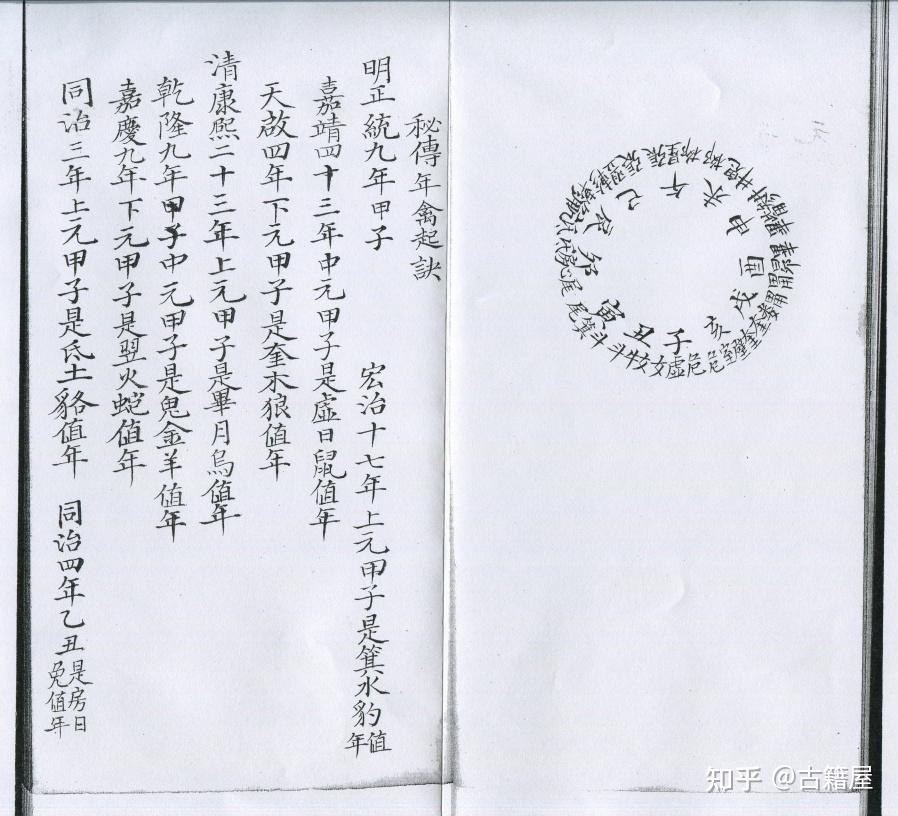 子丑寅卯辰巳午未申酉戌亥
尾箕斗斗牛女女虛危危室壁奎奎
秘傳年禽起訣
明正統九年甲子 宏治十七年上元甲子是箕水豹值年
嘉靖四十三年中元甲子是虛日鼠值年
天啟四年下元甲子是奎木狼值年
清康熙二十三年上元甲子是畢月烏值年
乾隆九年甲子中元甲子是鬼金羊值年
嘉慶九年下元甲子是翌火蛇值年
同治三年上元甲子是氐土貉值年 同治四年乙丑是房日兔值年
知乎 @古籍屋